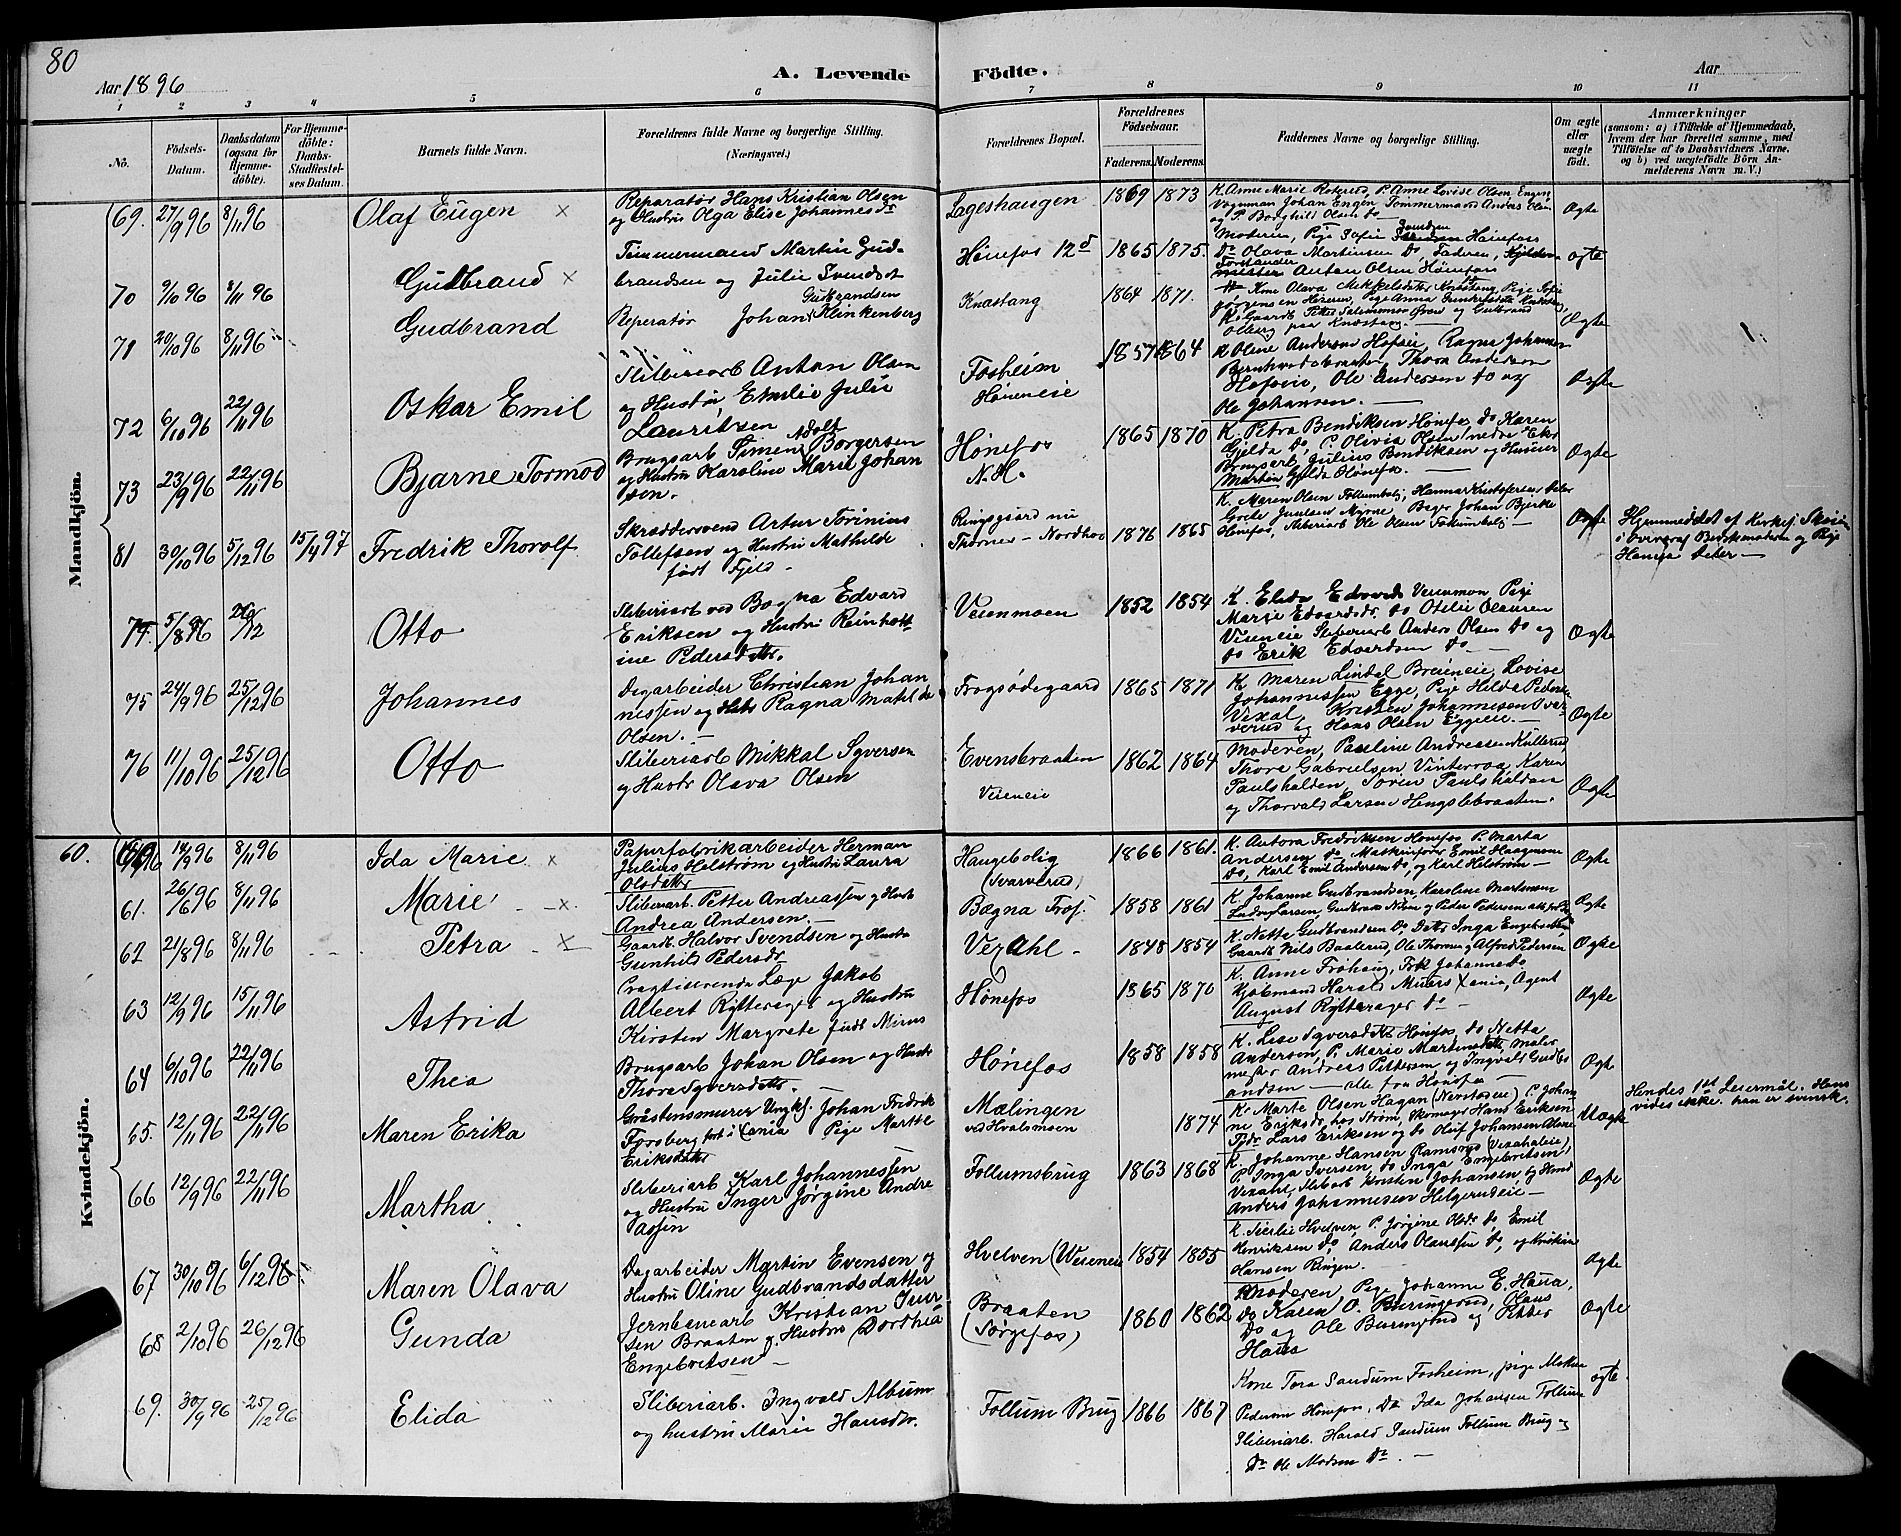 80
Aar 1896
A. Levende Födte.
Aar
1 2 3 4 5 6 7 8 9 10 11
No.
Födsels-Datum.
Daabsdatum (ogsaa for Hjemme-döbte).
For Hjemme-döbte: Daabs-Stadfæstel-ses Datum.
Barnets fulde Navn.
Forældrenes fulde Navne og borgerlige Stilling. (Næringsvei.)
Forældrenes Bopæl.
Forældrenes Födselsaar.
Faderens. Moderens.
Faddernes Navne og borgerlige Stilling.
Om ægte eller uægte födt.
Anmærkninger
(saasom: a) i Tilfælde af Hjemmedaab, hvem der har forrettet samme, med Tilföielse af to Daabsvidners Navne, og b) ved uægtefödte Börn An-melderens Navn m. V.)
Mandkjön.
69. 27/9 96 8/11 96 Olaf Eugen x
Reparatør Hans Kristian Olsen
og Hustru Olga Elise Johannesdr
Lageshaugen 1869 1873
K. Anne Marie Roterud, P. Anne Lovise Olsen Engen
Vognman Johan Engen, Tømmermand Anders Olsen
og P. Borghild Olsen do
Ægte
70 9/10 96 8/11 96 Gudbrand x
Tømmermand Martin Gud-
brandsen og Julie Svendsdt
Hønefos 12d 1865 1875.
Moderen, Pige Sofie Svendsen Hønefos
Do Olava Martinsen Do, Faderen,
Forstander Anton Olsen Hønefos
ægte
71 20/10 96 8/11 96 Gudbrand
Reperatør Johan Gudbrandsen Klinkenberg
Knastang 1864 1871.
Kone Olava Mikkelsdatter Knastang, Pige
og Gudbrand
Olberg paa Knastang.
Ægte
72 6/10 96 22/11 96 Oskar Emil
Sliberiarb Anton Olsen
og Hustru Emilie Julie
Lauritsen
Fosheim
Høneneie
1857 1864
K Oline Andersen Hofsei, Ragna Johansen
Bernhardsbraaten, Thora Andersen
Hofseie, Ole Andersen do og
Ole Johansen.
Ægte
73 23/9 96 22/11 96 Bjarne Tormod
Brugsarb Simen Adolf Borgersen
og Hustru Karoline Marie Johan
sen.
Hønefos
N.H.
1865 1870
K. Petra Bendiksen Hønefos, do Karen
Gjelda do, P. Olivia Olsen nedre Eker
Brugsarb Julius Bendiksen og Husmor
Martin Gjelda Hønefos.
Ægte
81 30/10 96 5/12 96 15/4 97 Fredrik Thorolf
Skræddersvend Artur Torinius
Tollefsen og Hustru Mathilde
født Fjeld.
Ringsgaard nu
Thorner Nordhov
1876 1865
K. Maren Olsen Follumhalj, Hanna Kristofersen Seter
Grete Juulsen Myrne, Bager Johan Bjerke
Hønefos, Sliberiarb Ole Olsen Follumhalj
Ægte
Hjemmedøbt af Kirkes. Skøien
i Overvær af Bedstemoderen og Pige
Hanna Seter
74. 5/8 96 26/12 Otto
Sliberiarb ved Bægna Edvard
Eriksen og Hustru Reinholt-
ine Pedersdatter.
Veienmoen 1852 1854
K. Elida Edvards Veienmoen Pige
Marie Edvardsdr. do Otelie Olausen
Veieneie Sliberiarb Anders Olsen do og
do Erik Edvardsen do
Ægte
75 24/9 96 25/12 96 Johannes
Dagarbeider Christian Johan
nissen og Hustr Ragna Mathilde
Olsen.
Frogsødegaard 1865 1871
K. Maren Lindal Breieneie, Lovise
Johannessen Egge, Pige Hilda Pedersen
Vexal, Kristen Johannesen Sver-
verud og Hans Olsen Eggeeie.
Ægte
76 11/10 96 25/12 96 Otto
Sliberiarb Mikkal Syversen
og Hustr Olava Olsen
Evensbraaten
Veieneie
1862 1864
Moderen, Pauline Andreassen Kullerud
Thore Gabrielsen Vinterroa Karen
Paulshalden, Søren Paulshalden
og Thorvald Larsen Hengslebraaten.
Ægte
Kvindekjön.
60. 14/9 96 8/11 96 Ida Marie x
Papirfabrikarbeider Herman
Julius Helstrøm og Hustru Laura
Olsdatter
Haugebolig
(Svarverud)
1866 1861.
K. Antora Fredriksen Hønefos P. Marta
Andersen do, Maskinfører Emil Haagensen
do, Karl Emil Andersen do, og Karl Helstrøm
Ægte
61. 26/6 96 8/11 96 Marie x
Sliberiarb. Petter Andreassen og Hustr
Andrea Andersen.
Bægna Træs. 1858 1861
K. Johanne Gudbrandsen Karoline Martinsen
Ludvig Larsen Gudbrand Nilsen og Peder Pedersen
Ægte
62 21/8 96 8/11 96 Petra x
Gaardb. Halvor Svendsen og Hustru
Gunhild Pedersdr
Vexahl 1848 1854
K. Nette Gudbrandsen Do Datter Inga Engebretsen,
Gaardb Nils Baalerud, Ole Thorsen og Alfred Pedersen
Ægte
63 12/9 96 15/11 96 Astrid
Practiserende Læge Jakob
Albert Rytterager og Hustru
Kirsten Margrete født Nirus
Hønefos 1865 1870
K. Anne Frøhaug, Frk Johanne do
Kjøbmand Harald Mulers Xania, Agent
August Rytterager do
Ægte
64 6/10 96 22/11 96 Thea
Brugsarb Johan Olsen og Hustr
Thora Syversdatter.
Hønefos 1858 1858
K. Lise Syversdatter Hønefos, do Netta
Andersen, P. Marie Martinsdatter maler
mester Andreas Pettersen og Ingvald Gudbr
andsen alle fra Hønefos
Ægte
65. 12/11 96 22/11 96 Maren Erika
Graastensmurer Ungk. Johan Fredrik
Forsberg født i Xania Pige Marthe
Eriksdatter
Mælingen
ved Hvalsmoen
1874
K. Marte Olsen Hagan P. Johan
ne Eriksdr hos Strøm, Skomager Hans Eriksen
Lars Eriksen og do Oluf Johansen
Uægte
Hendes 1st Leiermål. Hans
vides ikke. han er svensk.
66 12/9 96 22/11 96 Martha
Sliberiarb Karl Johannessen
og Hustru Inger Jørgine Andre
assen
Follumsbrug 1863 1868
K. Johanne Hansen Ramsrud (Vexahleie)
P. Inga Iversen, do Inga Engebretsen,
Vexahl, Slibarb Kristen Johansen og Husm
Anders Johannesen Helgerudeie
Ægte
67 30/10 96 6/12 96 Maren Olava
Dagarbeider Martin Evensen og
Hustru Oline Gudbrandsdatter
Hvelven (Veieneie) 1854 1855
K. Hvelven, P. Jørgine Olsdr do, Emil
Henriksen do, Anders Olaussen do, og Kristian
Hansen Ringen.
Ægte
68 2/10 96 26/12 96 Gunda
Jernbenearb Kristian Iver
sen Braaten og Hustru Dorthea
Engebretsen
Braaten
(Sørgefos)
1860 1862
Moderen, Pige Johanne E. Haua,
do Karen O. Buringsrud, Hans
do og Ole Buringsrud og Petter
Haua
Ægte
69. 30/9 96 25/12 96 Elida
Sliberiarb. Ingvald Album
og hustru Marie Hansdr.
Follum Brug 1866 1867
Kone Tora Sandum Fosheim, pige Mathea
Pedersen Hønefos, Do Ida Johansen Follum
Sliberiarb. Harald Sandum Follum Brug og
Do Ole Madsen Do.
ægte.